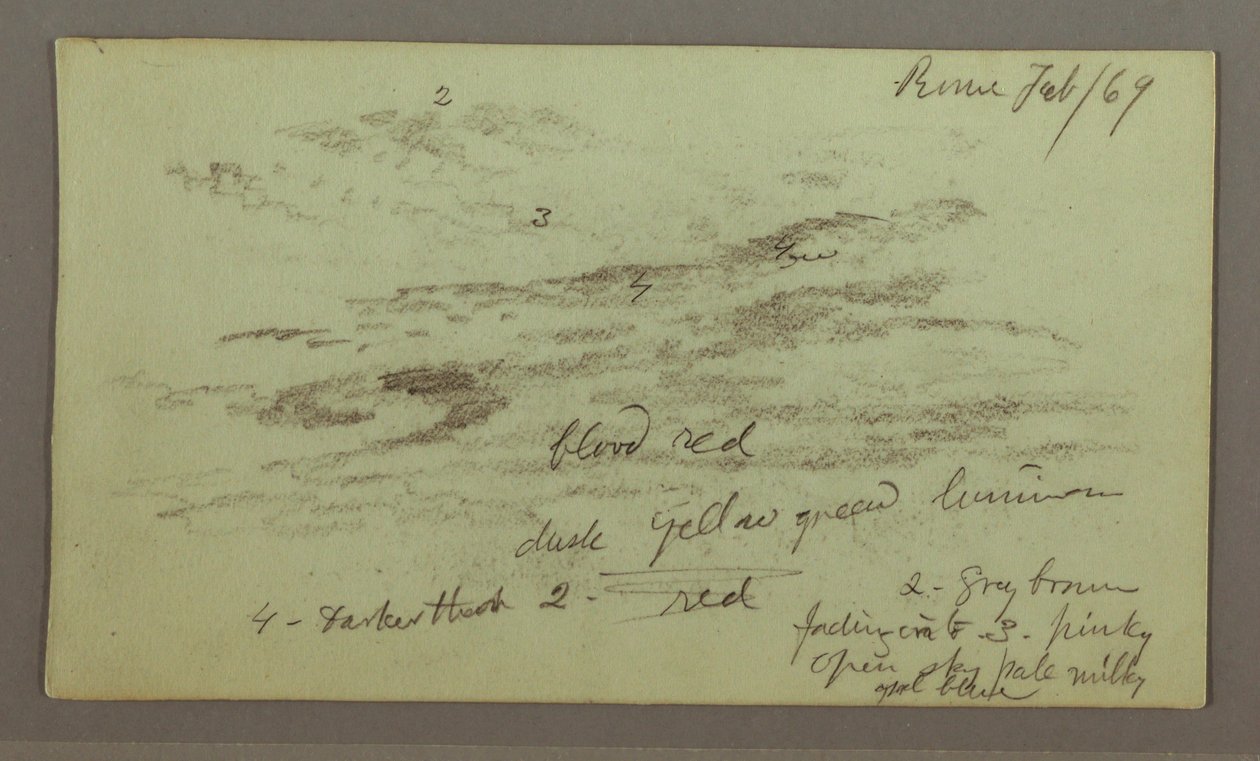 Rome Feb/69
2
3
4
4
blood red
dusk yellow green luminous
red
4 - Darker than 2 -
2 - Grey brown
fading into 3 - pinky
open sky pale milky
opal blue